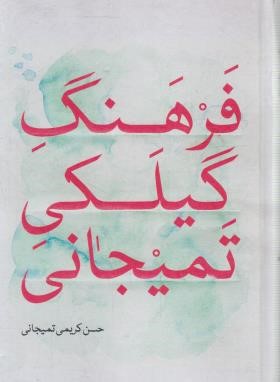 فَرْهَنگِ
گیلَکیِ
تَمیجٰانی
حسن کریمی تمیجانی